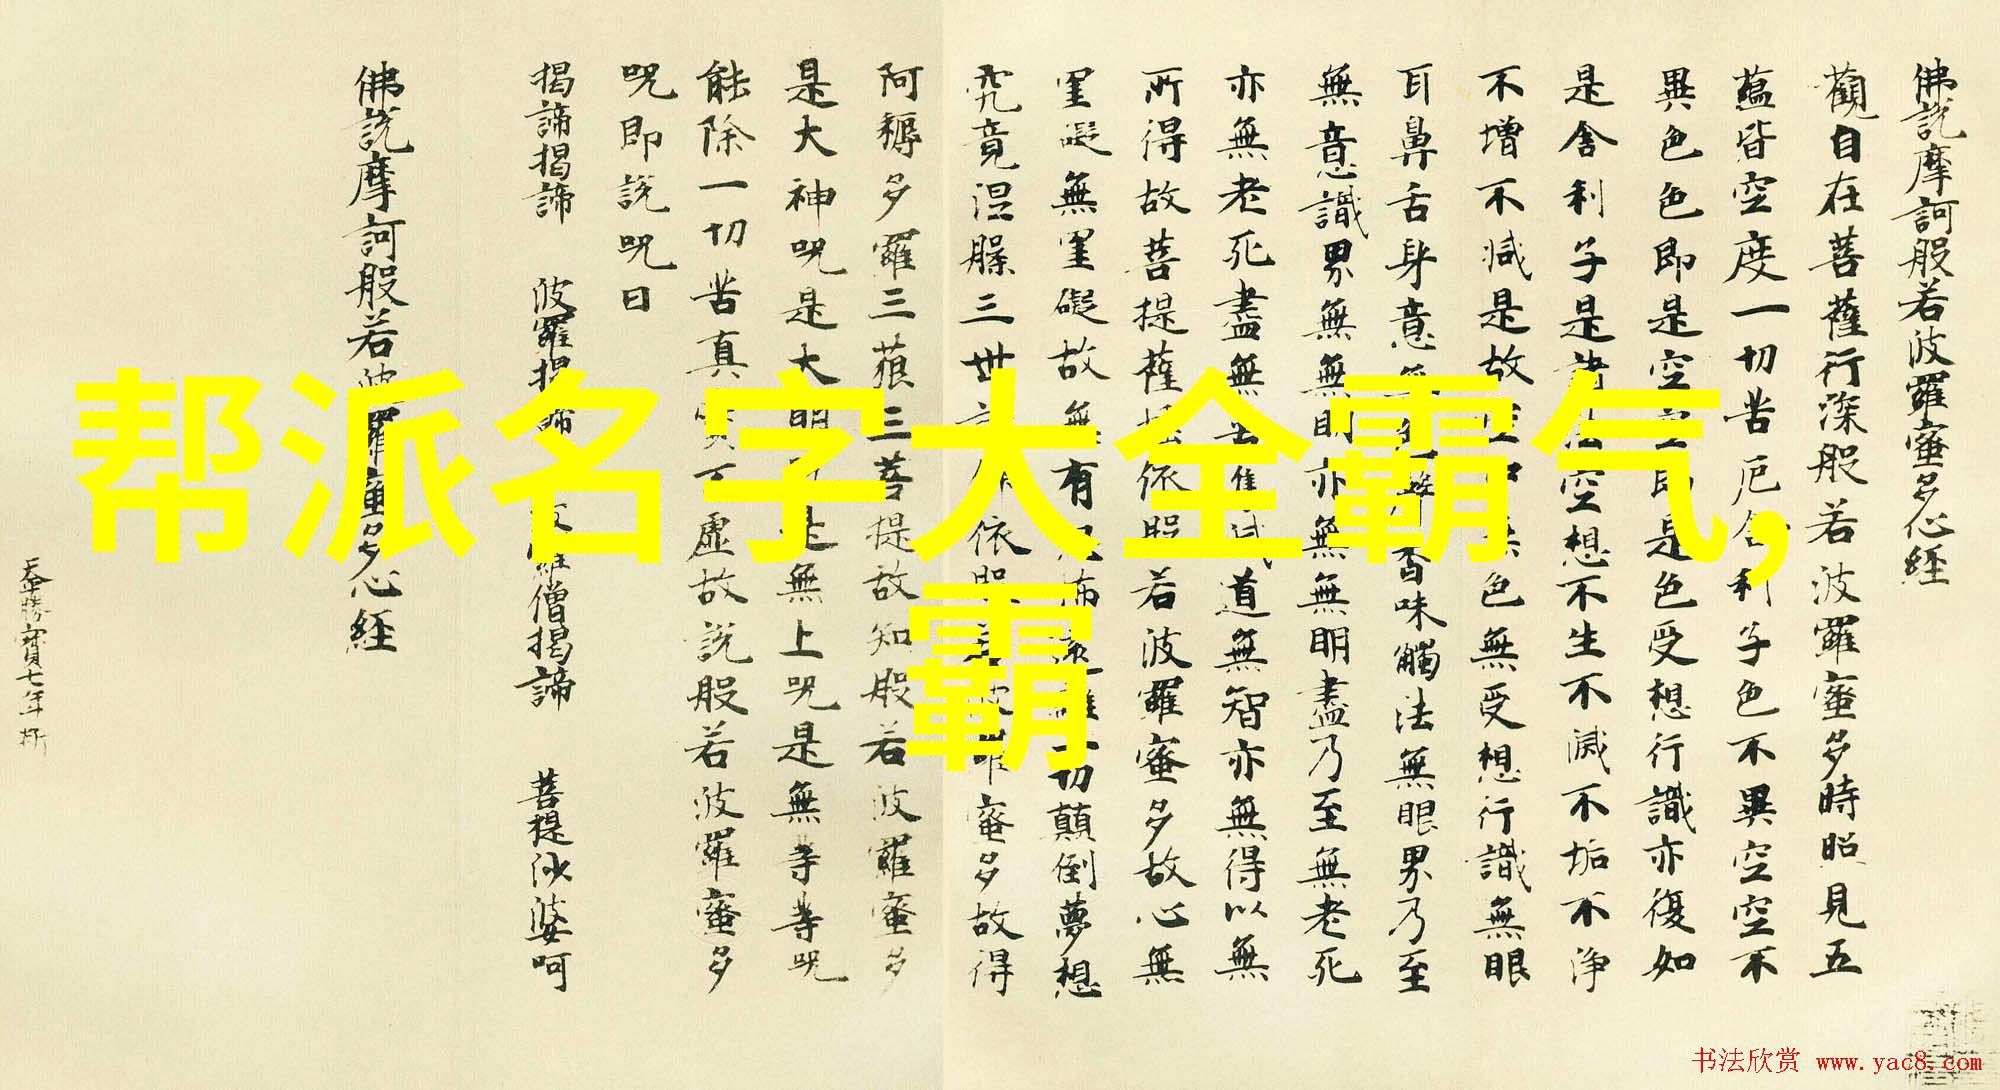 佛說摩訶般若波羅蜜多心経
觀自在菩薩行深般若波羅蜜多時照見五
蘊皆空度一切苦厄舍利子色不異空空不
異色色即是空空即是色受想行識亦復如
是舍利子是諸法空想不生不滅不垢不淨
不增不減是故空中無色無受想行識無眼
耳鼻舌身意無色聲香味觸法無眼界乃至
無意識界無無明亦無無明盡乃至無老死
亦無老死盡無苦集滅道無智亦無得以無
所得故菩提薩埵依般若波羅蜜多故心無
罣礙無罣礙故無有恐怖遠離一切顛倒夢想
究竟涅槃三世諸佛依般若波羅蜜多故得
阿耨多羅三藐三菩提故知般若波羅蜜多
是大神呪是大明呪是無上呪是無等等呪
能除一切苦真實不虛故說般若波羅蜜多
呪即說呪曰
揭諦揭諦 波羅揭諦 波羅僧揭諦 菩提沙婆呵
佛說摩訶般若波羅蜜多心経
帮派名字大全霸气,
霸
书法欣赏 www.yac8.com